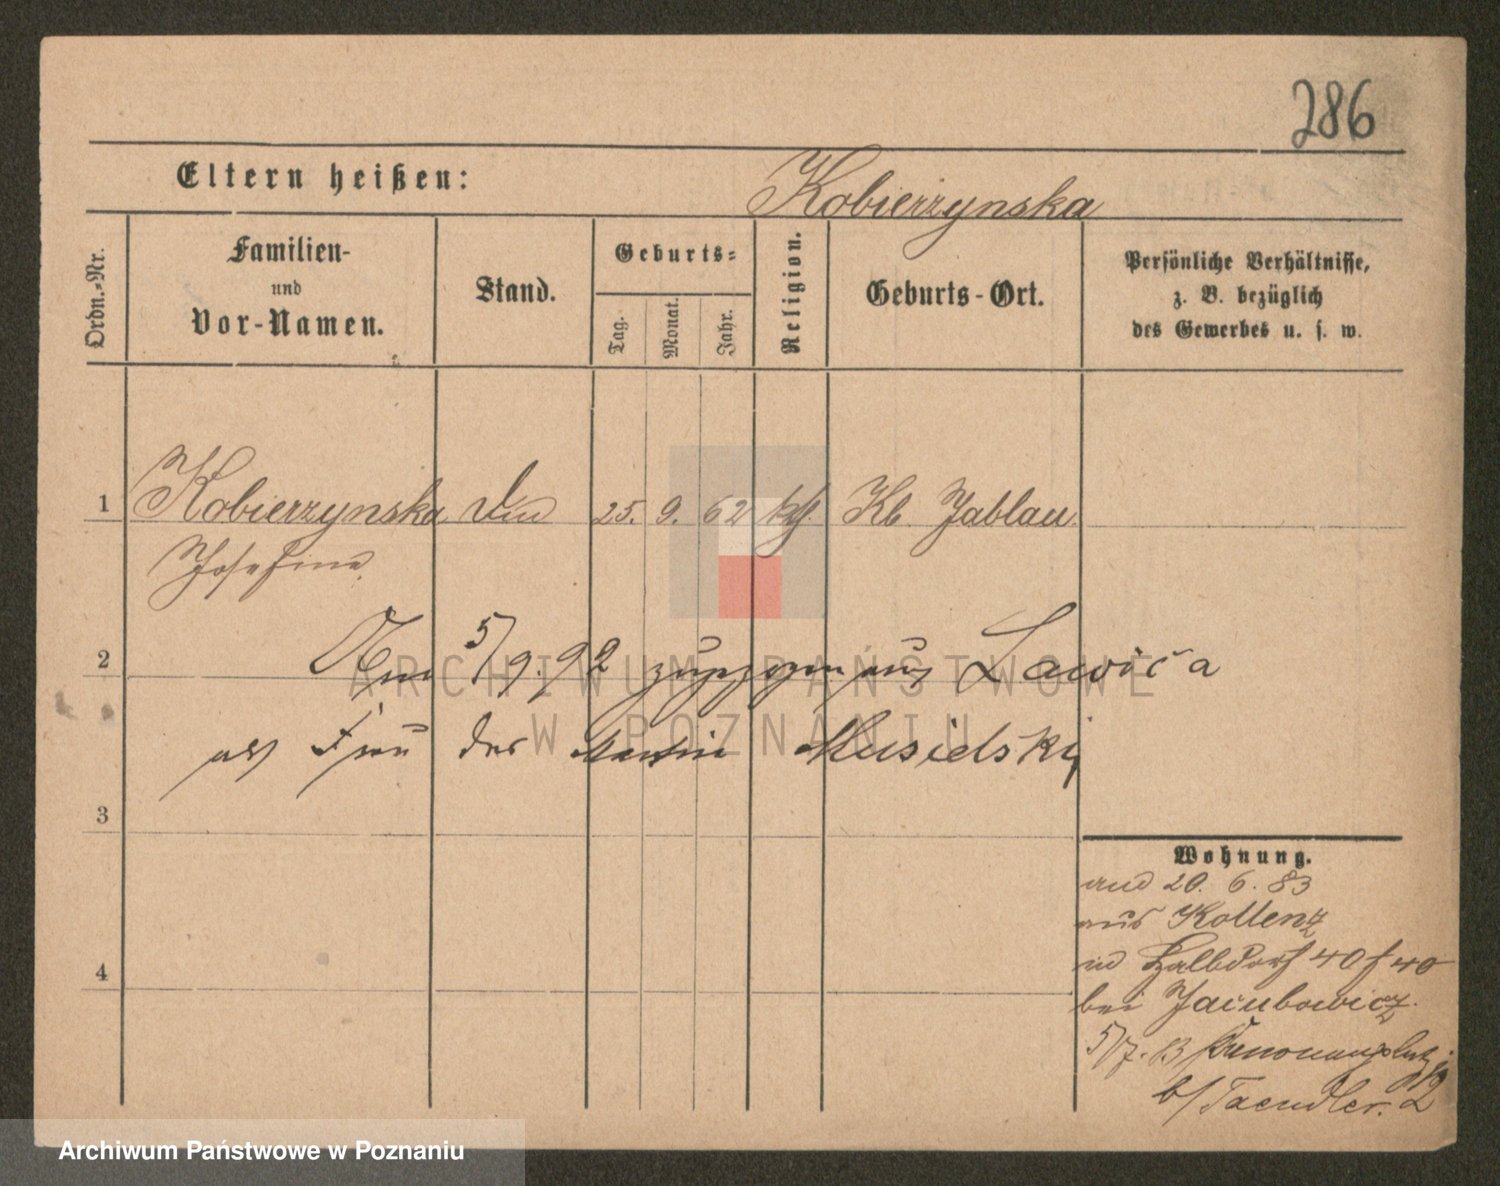 286
Eltern heißen:
Kobierzynska
Ordn.-Nr.
Familien-
und
Vor-Namen.
Stand.
Geburts-
Tag.
Monat.
Jahr.
Religion.
Geburts-Ort.
Persönliche Verhältnisse,
z. B. bezüglich
des Gewerbes u. s. w.
1 Kobierzynska 25. 9. 62 kth. Kl. Jablau
Josefine
2 Am 5/9.92 zugezogen aus Lawica
als Frau des Martin Musielski
3
Wohnung.
20. 6. 83
aus Kollenz
in Halbdorf 40 f 40
4
bei Jacubowicz.
5/7. b/ Taendler.
ARCHIWUM PAŃSTWOWE
W POZNANIU
Archiwum Państwowe w Poznaniu